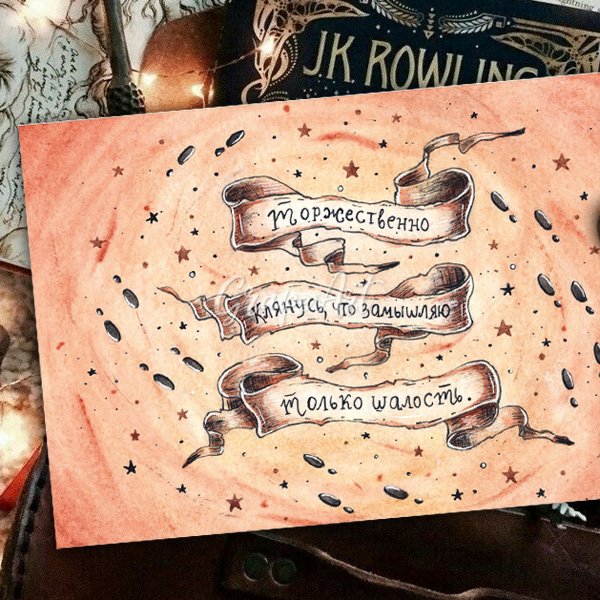 J.K. ROWLING
Торжественно
клянусь, что замышляю
только шалость.